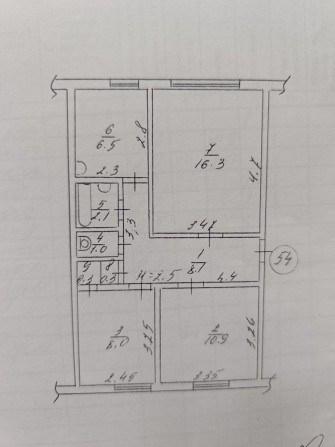 6
6.5
2.8
2.3
7
16.3
4.7
3.47
5
2.1
3,3
4
1.0
1
8.7
54
9
0.3
8
0.3
H=2.5
4.4
3
8.0
3.25
2.45
2
10.9
3.26
3.35